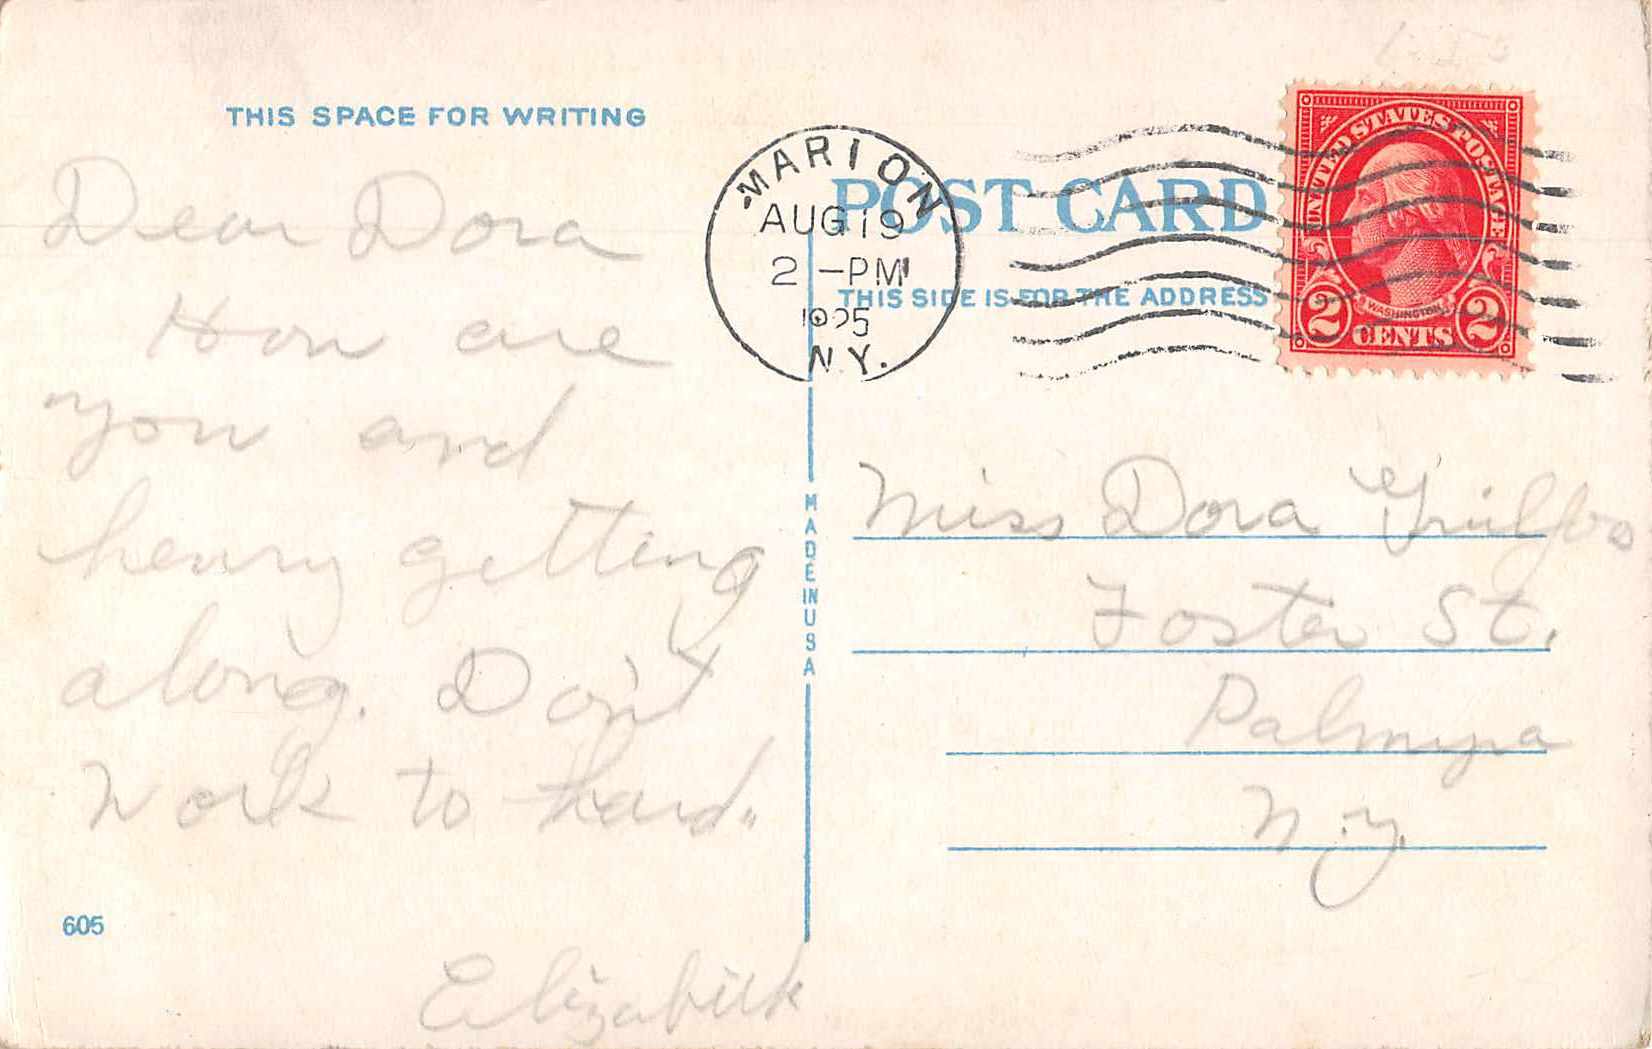 THIS SPACE FOR WRITING
Dear Dora
How are
you and
henry getting
along. Don't
Work to hard.
Elizabeth
605
MARION
AUG 19
2 -PM
1925
N.Y.
POST CARD
THIS SIDE IS FOR THE ADDRESS
UNITED STATES POSTAGE
WASHINGTON
2 CENTS 2
MADE IN USA
Miss Dora
Foster St.
Palmyra
N.Y.